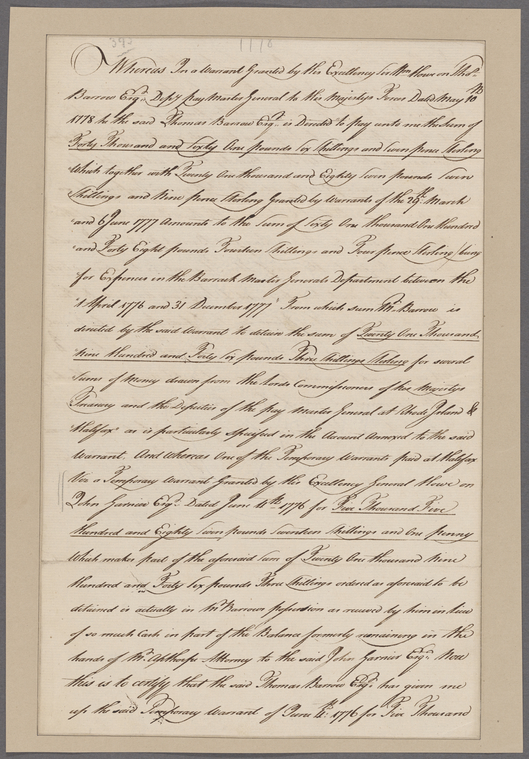 1778
Whereas In a Warrant Granted by his Excellency Sir Wm Howe on Thos.
Barrow Esqr. Depy pay Master General to his Majestys Forces Dated May 10th
1778 to the said Thomas Barrow Esqr. is Directed to pay unto me the Sum of
Forty Thousand and Sixty One pounds Six Shillings and Seven pence Sterling
Which together with Twenty One thousand and Eighty Seven pounds Seven
Shillings and Nine pence Sterling Granted by Warrants of the 29th. March
and 6 June 1777 Amounts to the Sum of Sixty One thousand One hundred
and Forty Eight pounds Fourteen Shillings and Four pence Sterling being
for Expences in the Barrack Master Generals Department between the
1 April 1776 and 31 December 1777 From which sum Mr. Barrow is
directed by the said Warrant to detain the sum of Twenty One Thousand
Nine Hundred and Forty Six pounds Three Shillings Sterling for several
Sums of Money drawn from the Lords Commissioners of his Majestys
Treasury and the Deputies of the pay Master General at Rhode Island &
Halifax as is particularly Specified in the Account Annexed to the said
Warrant. And Whereas One of the Temporary Warrants paid at Halifax
Viz a Temporary Warrant Granted by his Excellency General Howe on
John Garnier Esqr. Dated June 4th 1776 for Five Thousand Five
Hundred and Eighty Seven pounds Seventeen Shillings and One penny
Which makes part of the aforesaid Sum of Twenty One thousand Nine
Hundred and Forty Six pounds Three Shillings ordered as aforesaid to be
detained is actually in Mr. Barrows possession as received by him in lieu
of so much Cash in part of the Balance formerly remaining in the
hands of Mr. Apthorpe Attorney to the said John Garnier Esqr. Now
this is to certify that the said Thomas Barrow Esqr. has given me
up the said Temporary Warrant of June 4th. 1776 for Five Thousand